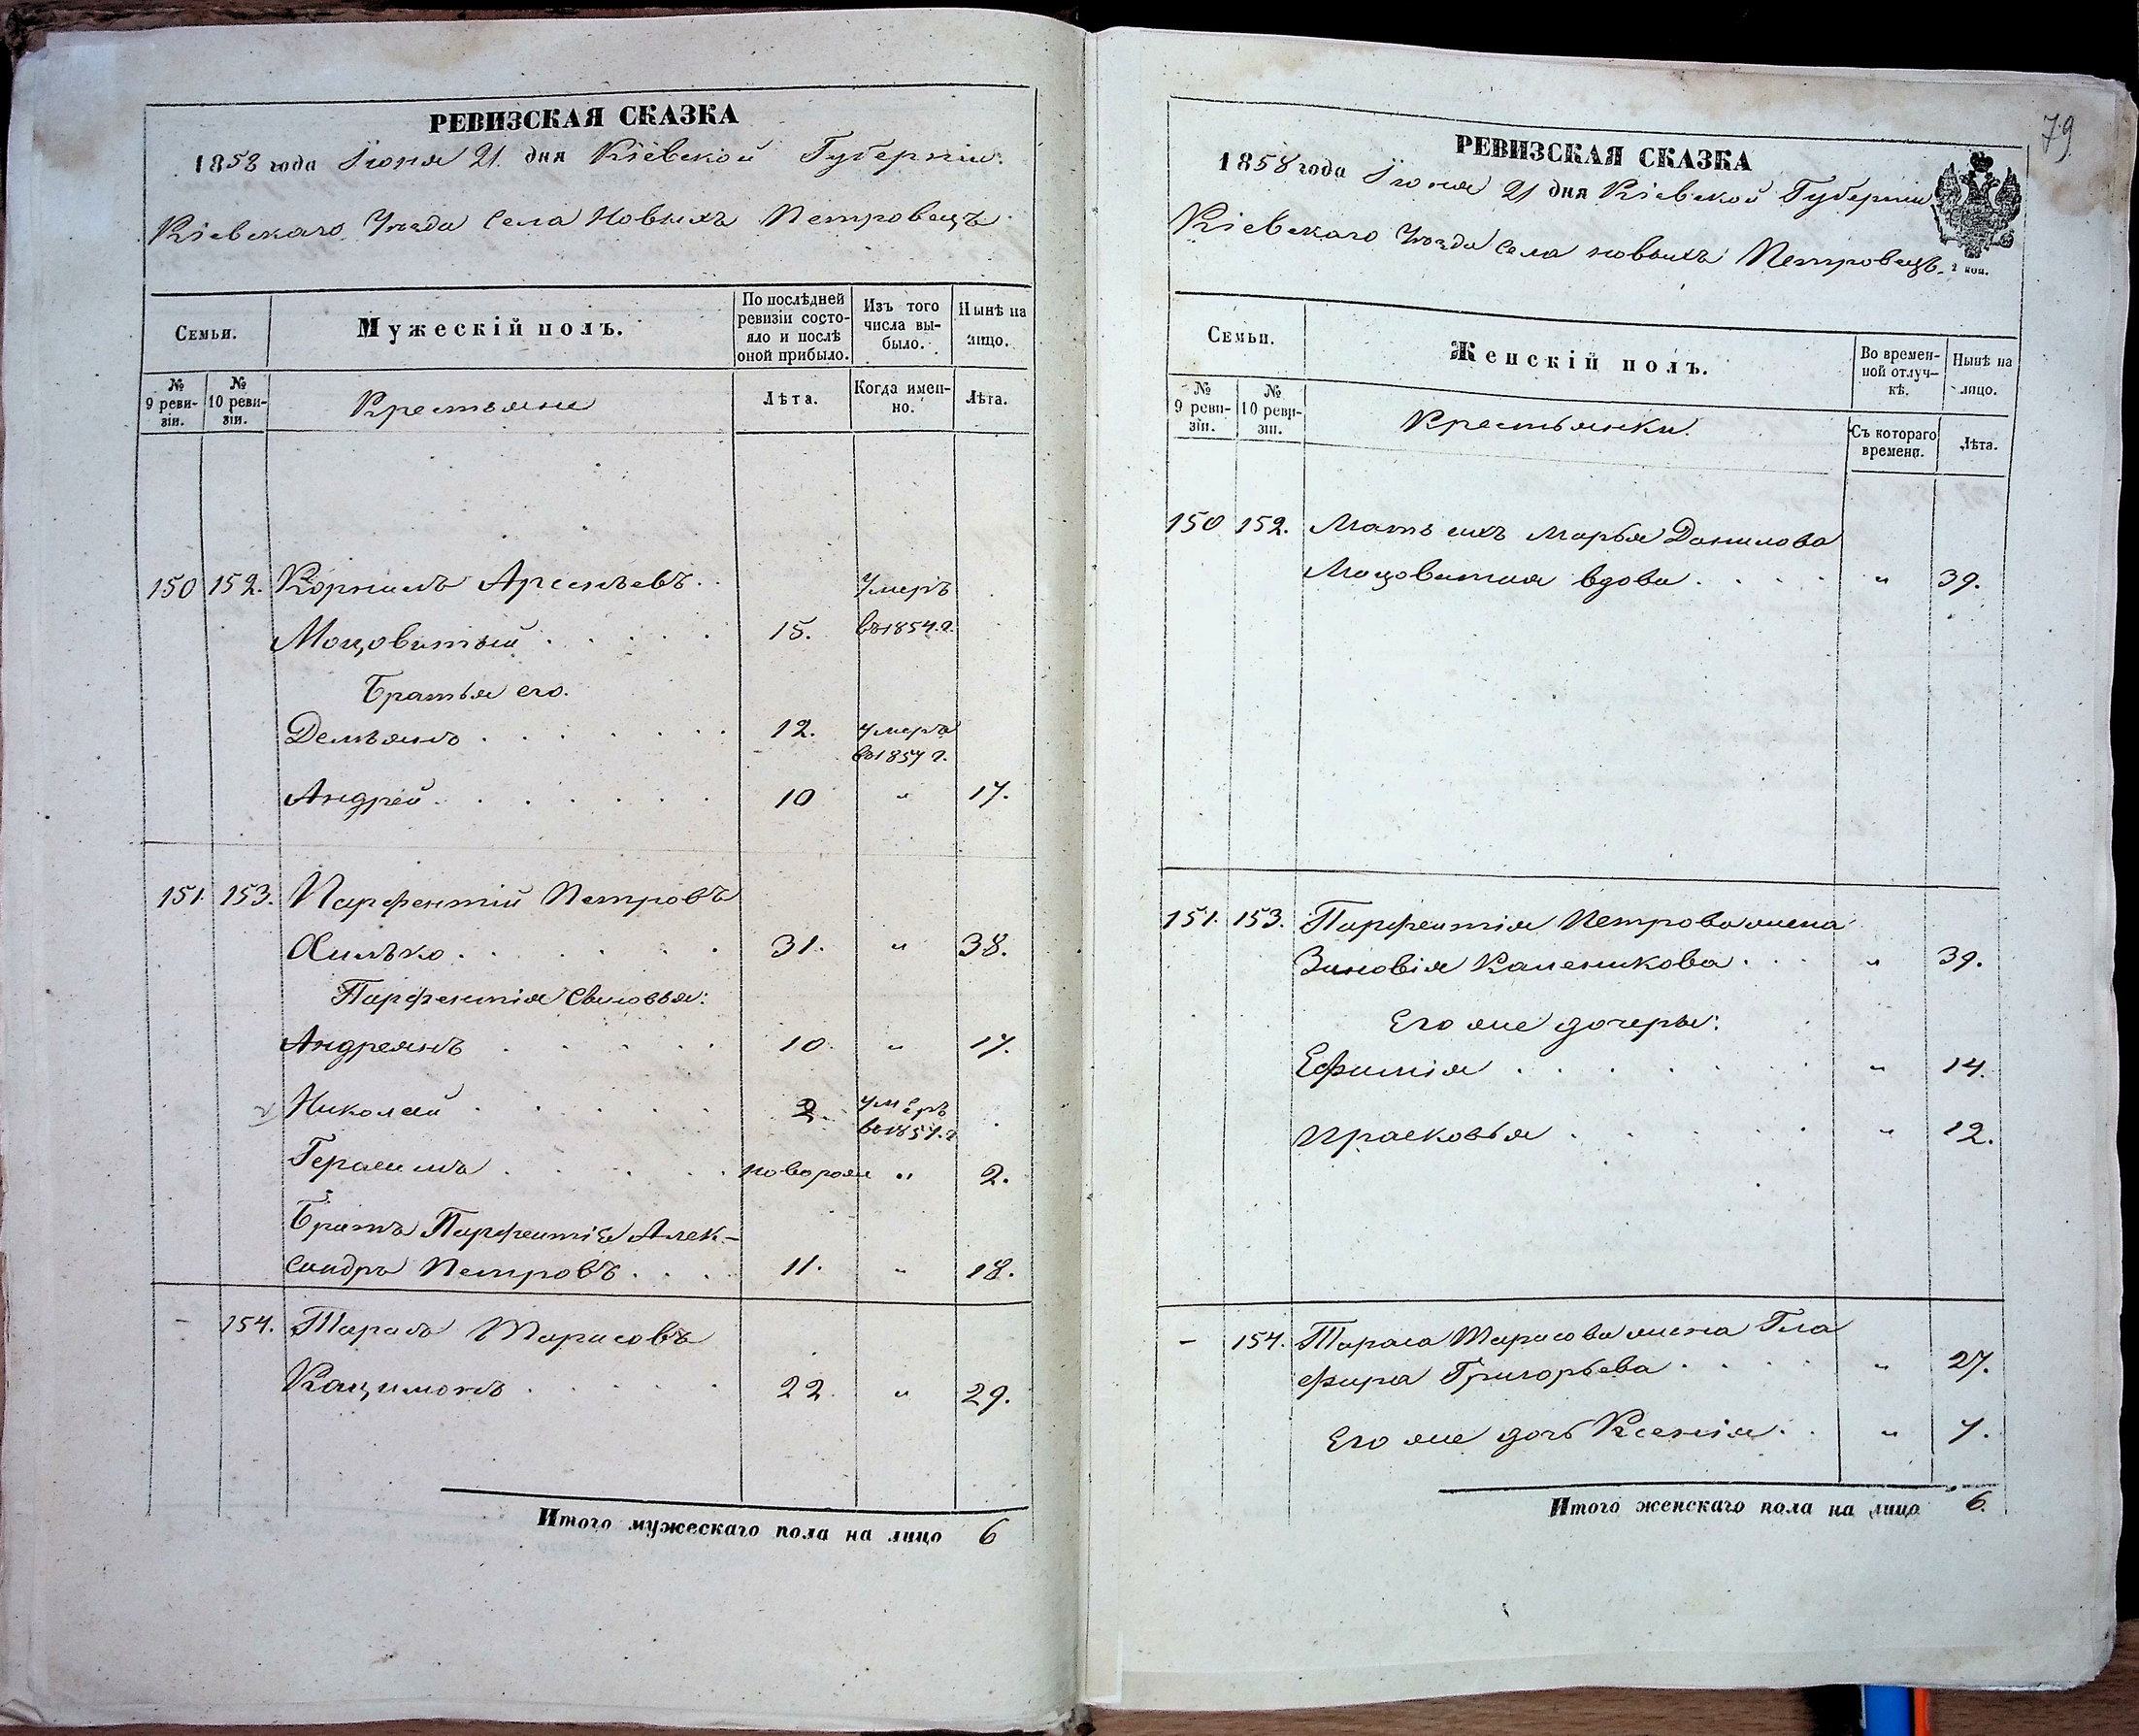 РЕВИЗСКАЯ СКАЗКА
1858 года Іюня 21 дня Кіевской Губерніи
Кіевскаго Уѣзда Села Новыхъ Петровецъ
Семьи.
Мужескій полъ.
По послѣдней ревизіи состояло и послѣ оной прибыло.
Изъ того числа выбыло.
Нынѣ на лицо.
№ 9 ревизіи.
№ 10 ревизіи.
Крестьяне
Лѣта.
Когда именно.
Лѣта.
150 152. Корнилъ Арсеньевъ. Умеръ
Моцовитый 15. въ 1854. г.
Братья его.
Демьянъ 12. умеръ
въ 1857 г.
Андрей 10 " 17.
151. 153. Парфентій Петровъ
Хилько 31. " 38.
Парфентія Сыновья:
Андреянъ 10. " 17.
Николай 2. умеръ
въ 1857. г.
Герасимъ новорож " 2.
Братъ Парфентія Алек-
сандръ Петровъ 11. " 18.
- 154. Тарасъ Тарасовъ
Кацимонъ 22. " 29.
Итого мужескаго пола на лицо 6
79
РЕВИЗСКАЯ СКАЗКА
1858 года Іюня 21 дня Кіевской Губерніи
Кіевскаго Уѣзда Села новыхъ Петровецъ.
2 коп.
Семьи.
Женскій полъ.
Во временной отлучкѣ.
Нынѣ на лицо.
№ 9 ревизіи.
№ 10 ревизіи.
Крестьянки.
Съ котораго времени.
Лѣта.
150 152. Мать ихъ Марья Данилова
Моцовитая вдова " 39.
151. 153. Парфентія Петрова жена
Зиновія Каленикова " 39.
Его же дочеры:
Ефимія " 14.
Прасковья " 12.
- 154. Тараса Тарасова жена Гла
фира Григорьева " 27.
Его же дочь Ксенія " 7.
Итого женскаго пола на лицо 6.